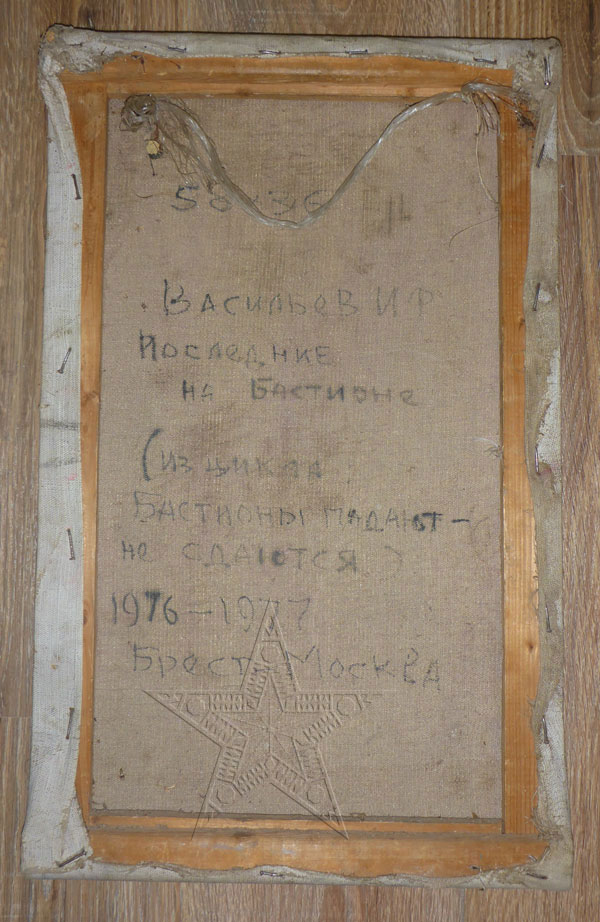 58×36
Васильев И Ф
Последние
на Бастионе
(из цикла
Бастионы падают –
не сдаются)
1976–1977
Брест Москва